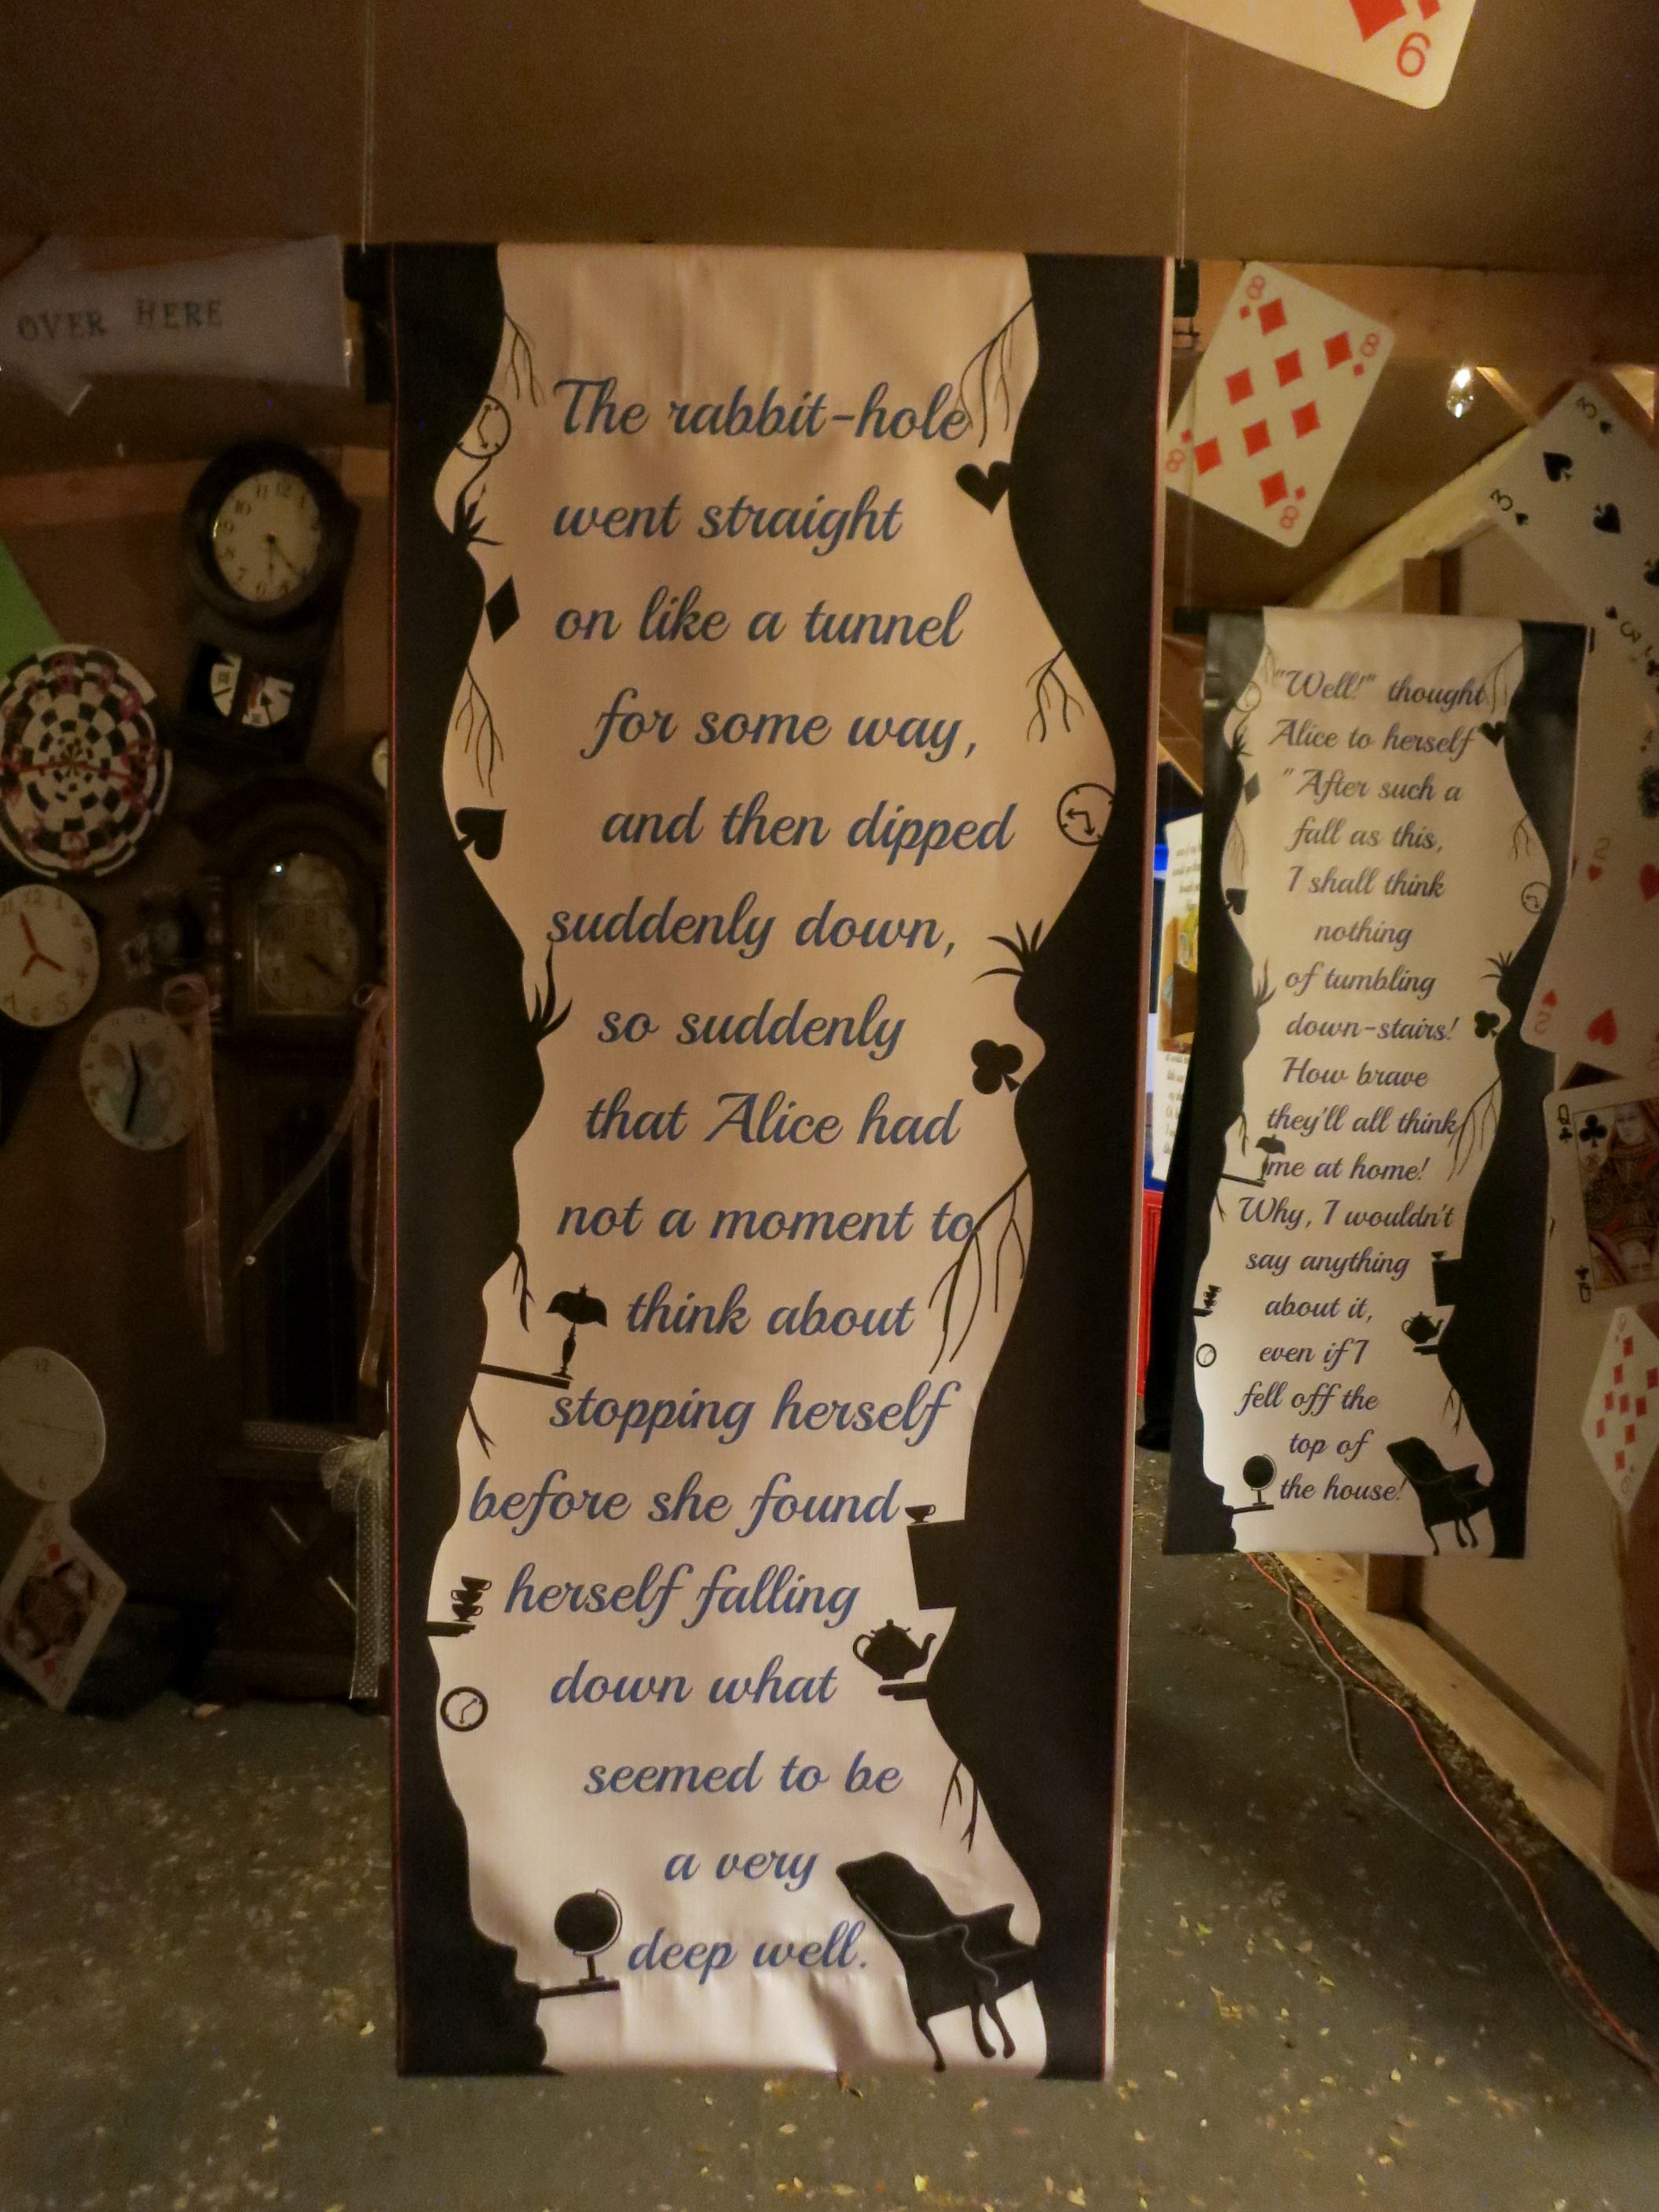 OVER HERE
The rabbit-hole
went straight
on like a tunnel
for some way,
and then dipped
suddenly down,
so suddenly
that Alice had
not a moment to
think about
stopping herself
before she found
herself falling
down what
seemed to be
a very
deep well.
"Well!" thought
Alice to herself
"After such a
fall as this,
I shall think
nothing
of tumbling
down-stairs!
How brave
they'll all think
me at home!
Why, I wouldn't
say anything
about it,
even if I
fell off the
top of
the house!
6
8
8
8
8
3
3
3
2
2
Q
Q